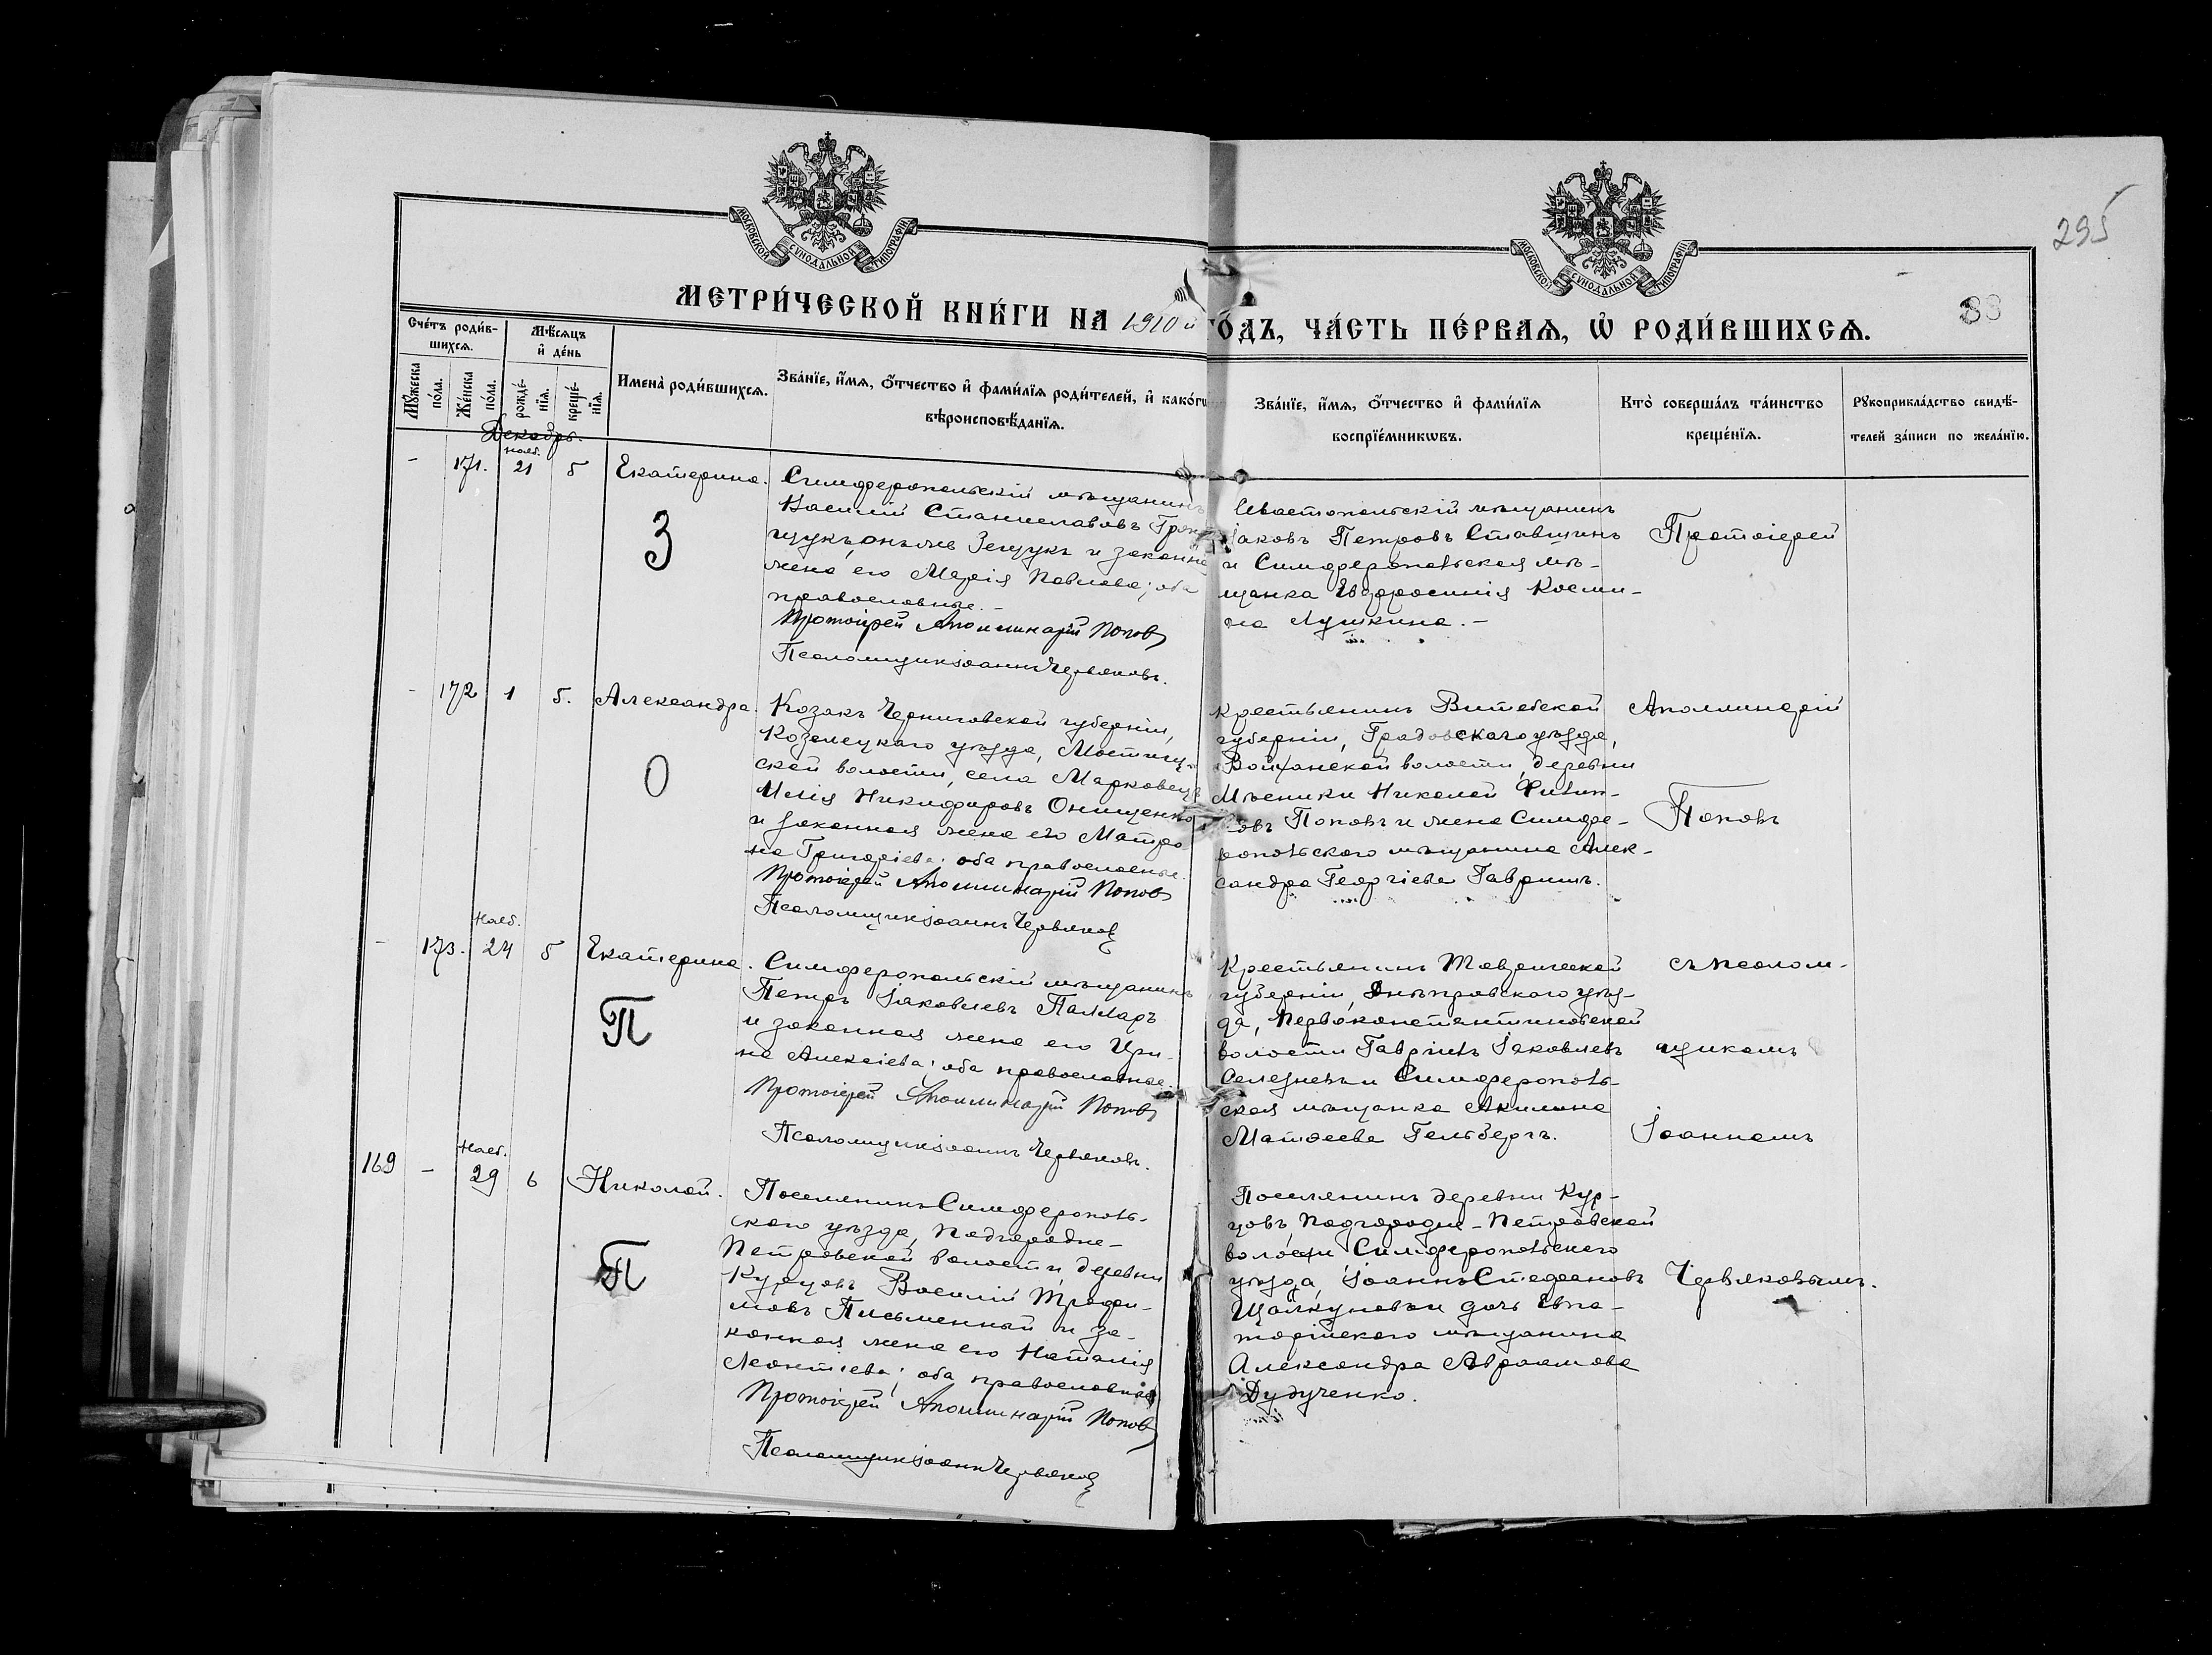 МОСКОВСКОЙ СѴНОДАЛЬНОЙ ТИПОГРАФІИ
МОСКОВСКОЙ СѴНОДАЛЬНОЙ ТИПОГРАФІИ
295
38
МЕТРИ́ЧЕСКОЙ КНИ́ГИ НА 1910й ГО́ДЪ, ЧА́СТЬ ПЕ́РВАѦ, Ѡ РОДИ́ВШИХСѦ.
Сче́тъ роди́в-
шихсѧ.
Мꙋ́жеска
по́ла.
Же́нска
по́ла.
Мѣ́сѧцъ
и҆ де́нь
рожде́-
нїѧ.
креще́-
нїѧ.
Имена̀ роди́вшихсѧ.
Зва́нїе, и҆́мѧ, ѻ҆́тчество и҆ фами́лїѧ роди́телей, и҆ како́гѡ
вѣроисповѣ́данїѧ.
Зва́нїе, и҆́мѧ, ѻ҆́тчество и҆ фами́лїѧ
воспрїе́мникѡвъ.
Кто̀ соверша́лъ та́инство
креще́нїѧ.
Рꙋкоприкла́дство свидѣ́-
телей за́писи по жела́нїю.
Декабрь.
-
171.
Нояб.
21
5
Екатерина.
З
Симферопольскій мѣщанинъ
Василій Станиславовъ
онъ же Зещукъ и законная
жена его Марія Павлова; оба
православные.-
Протоіерей Аполлинарій Попов
Псаломщикъ Іоаннъ Червяковъ.
Севастопольскій мѣщанинъ
Іаковъ Петровъ Ставицинъ
и Симферопольская мѣ-
щанка Евфросинія Косми-
на Лушкина.-
Протоіерей
-
172
1
5.
Александра.
О
Козакъ Черниговской губерніи,
Козелецкаго уѣзда, Мостищ-
ской волости, села Марковецъ
Никифоровъ Онищенко
и законная жена его Матро
на Григоріева; оба православные.
Протоіерей Аполлинарій Попов
Псаломщикъ Іоаннъ Червяков
крестьянинъ Витебской
губерніи, уѣзда,
волости, деревни
Мѣсники Николай Филип-
повъ Поповъ и жена Симфе-
ропольского мѣщанина Алек-
сандра Георгіева Гавришъ.
Аполлинарій
Поповъ
-
173.
Нояб.
24
5
Екатерина.
П
Симферопольскій мѣщанинъ
Петръ Іаковлевъ Палларъ
и законная жена его Ири-
на Алексіева; оба православные.
Протоіерей Аполлинарій Попов
Псаломщикъ Іоаннъ Червяковъ.
Крестьянинъ Таврической
губерніи, Днѣпровского уѣз-
да, Первоконстантиновской
волости Гавріилъ Іаковлевъ
Селезневъ и Симферополь-
ская мѣщанка Акилина
Матѳеева Гельбергъ.
съ псалом-
щикомъ
Іоанномъ
169
-
Нояб.
29
6
Николай.
П
Поселянинъ Симферополь-
ского уѣзда, Подгородне-
Петровской волости, деревни
Курцовъ Василій Трофи-
мовъ Письменный и за-
конная жена его Наталія
Леонтіева; оба православные
Протоіерей Аполлинарій Попов
Псаломщикъ Іоаннъ Червяков
Поселянинъ деревни Кур-
цовъ, Подгородне-Петровской
волости Симферопольского
уѣзда, Іоаннъ Стефановъ
Щолкуновъ и дочь Евпа-
торійского мѣщанина
Александра Авраамова
Дудученко.
Червяковымъ.